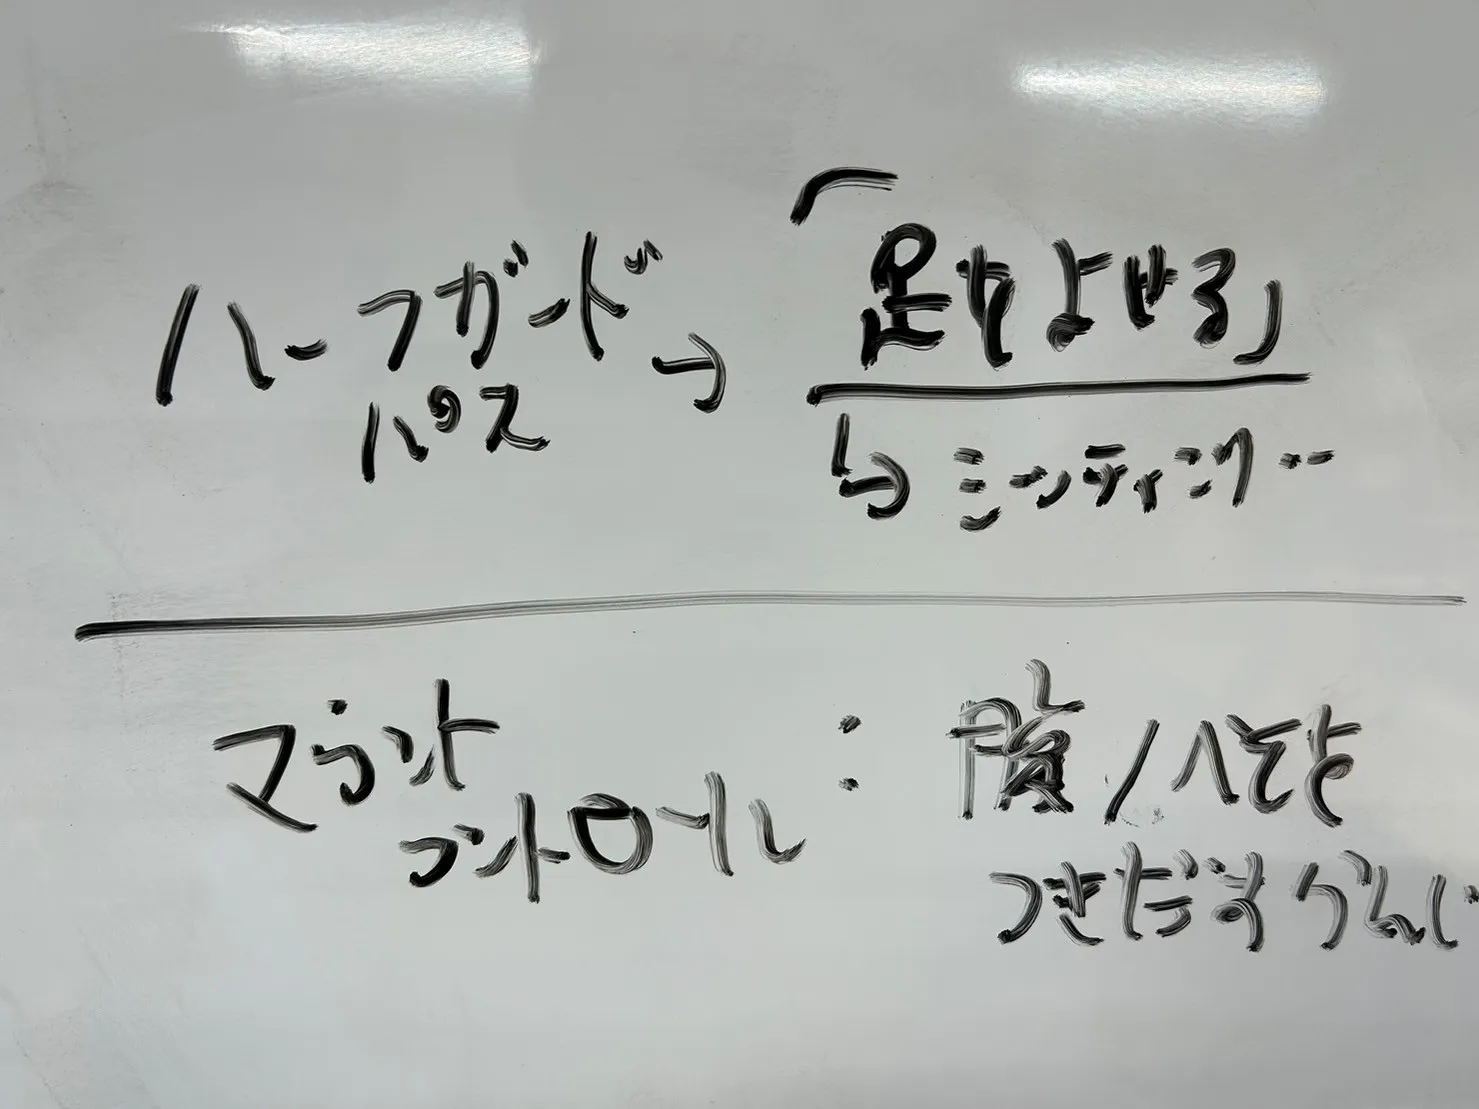 ハーフガード
パス → 「足をよせる」
↳ ミーティング…
マウント
コントロール : 腹/へそを
つきだすかんじ